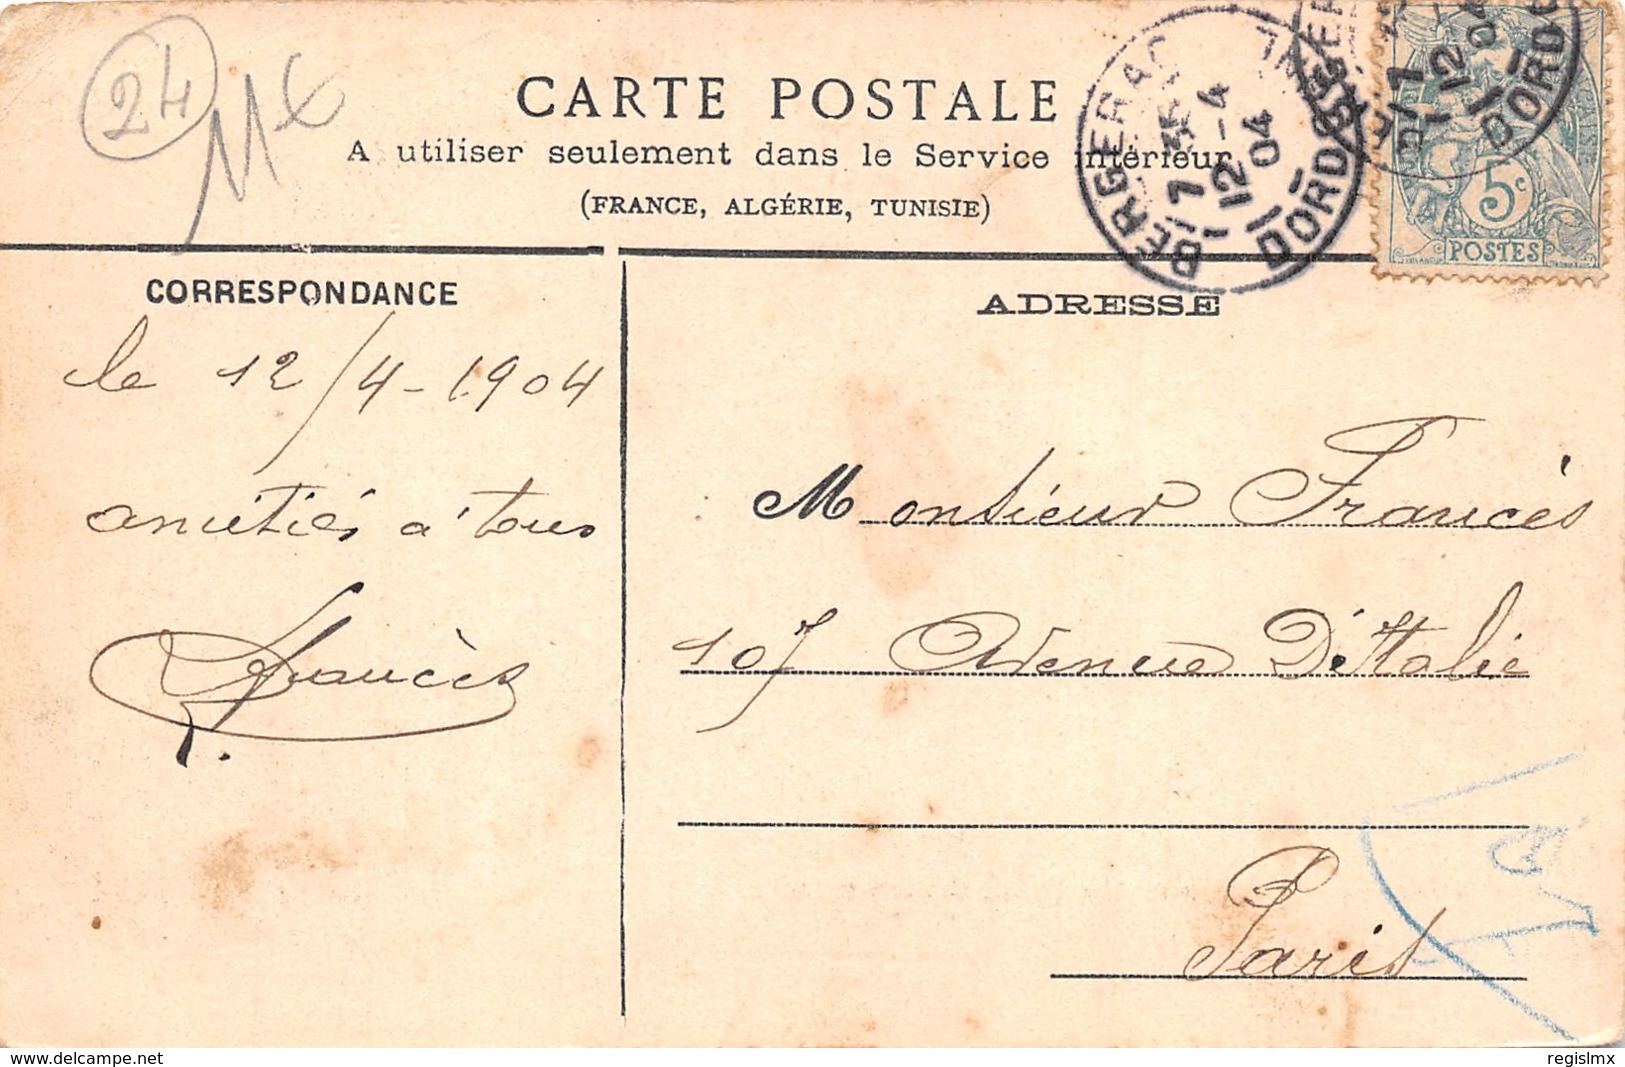 24
CARTE POSTALE
A utiliser seulement dans le Service intérieur
(FRANCE, ALGÉRIE, TUNISIE)
BERGERAC
12 -4
04
DORDOGNE
5c
POSTES
CORRESPONDANCE
le 12/4-1904
amitiés à tous
Francès
ADRESSE
Monsieur Francès
107 Avenue D'Italie
Paris
www.delcampe.net
regislmx